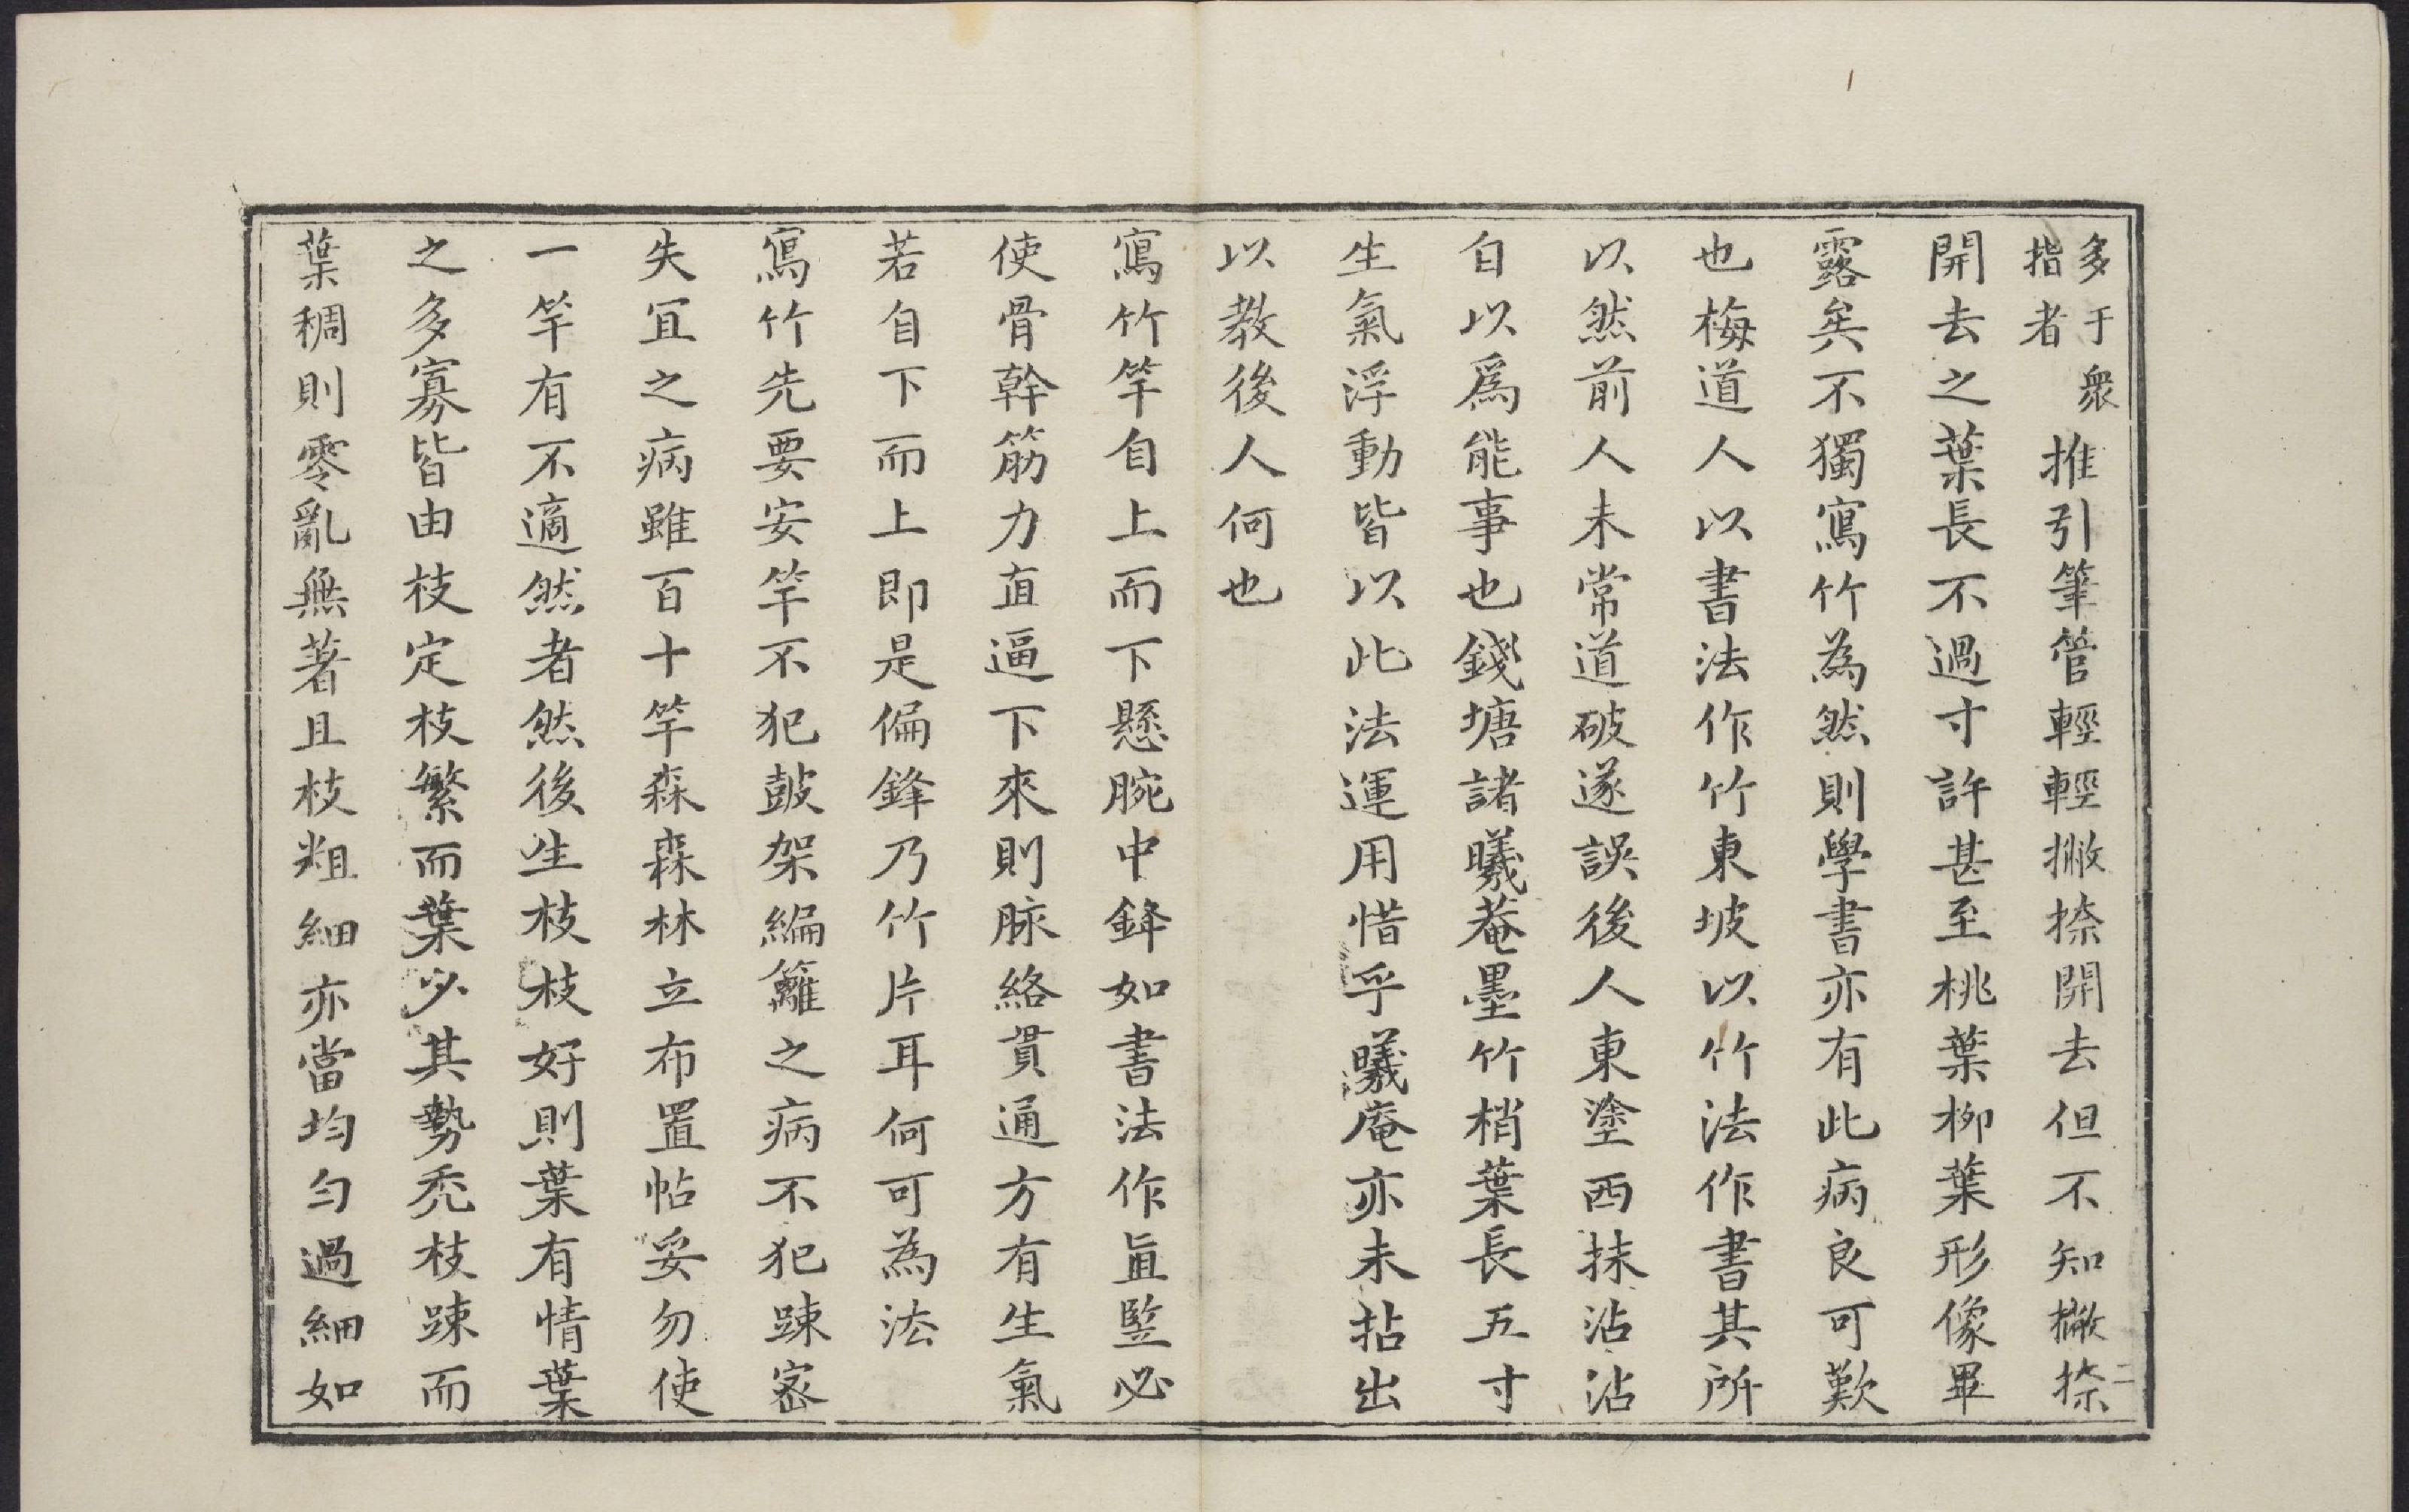 多于衆
指者
推引筆管輕輕撇捺開去但不知撇捺
開去之葉長不過寸許甚至桃葉柳葉形像畢
露矣不獨寫竹為然則學書亦有此病良可歎
也梅道人以書法作竹東坡以竹法作書其所
以然前人未常道破遂誤後人東塗西抹沾沾
自以爲能事也錢塘諸曦菴墨竹梢葉長五寸
生氣浮動皆以此法運用惜乎曦庵亦未拈出
以教後人何也
寫竹竿自上而下懸腕中鋒如書法作直竪必
使骨幹筋力直逼下來則脉絡貫通方有生氣
若自下而上即是偏鋒乃竹片耳何可為法
寫竹先要安竿不犯鼓架編籬之病不犯踈密
失宜之病雖百十竿森森林立布置帖妥勿使
一竿有不適然者然後生枝枝好則葉有情葉
之多寡皆由枝定枝繁而葉少其勢禿枝踈而
葉稠則零亂無著且枝粗細亦當均勻過細如
二